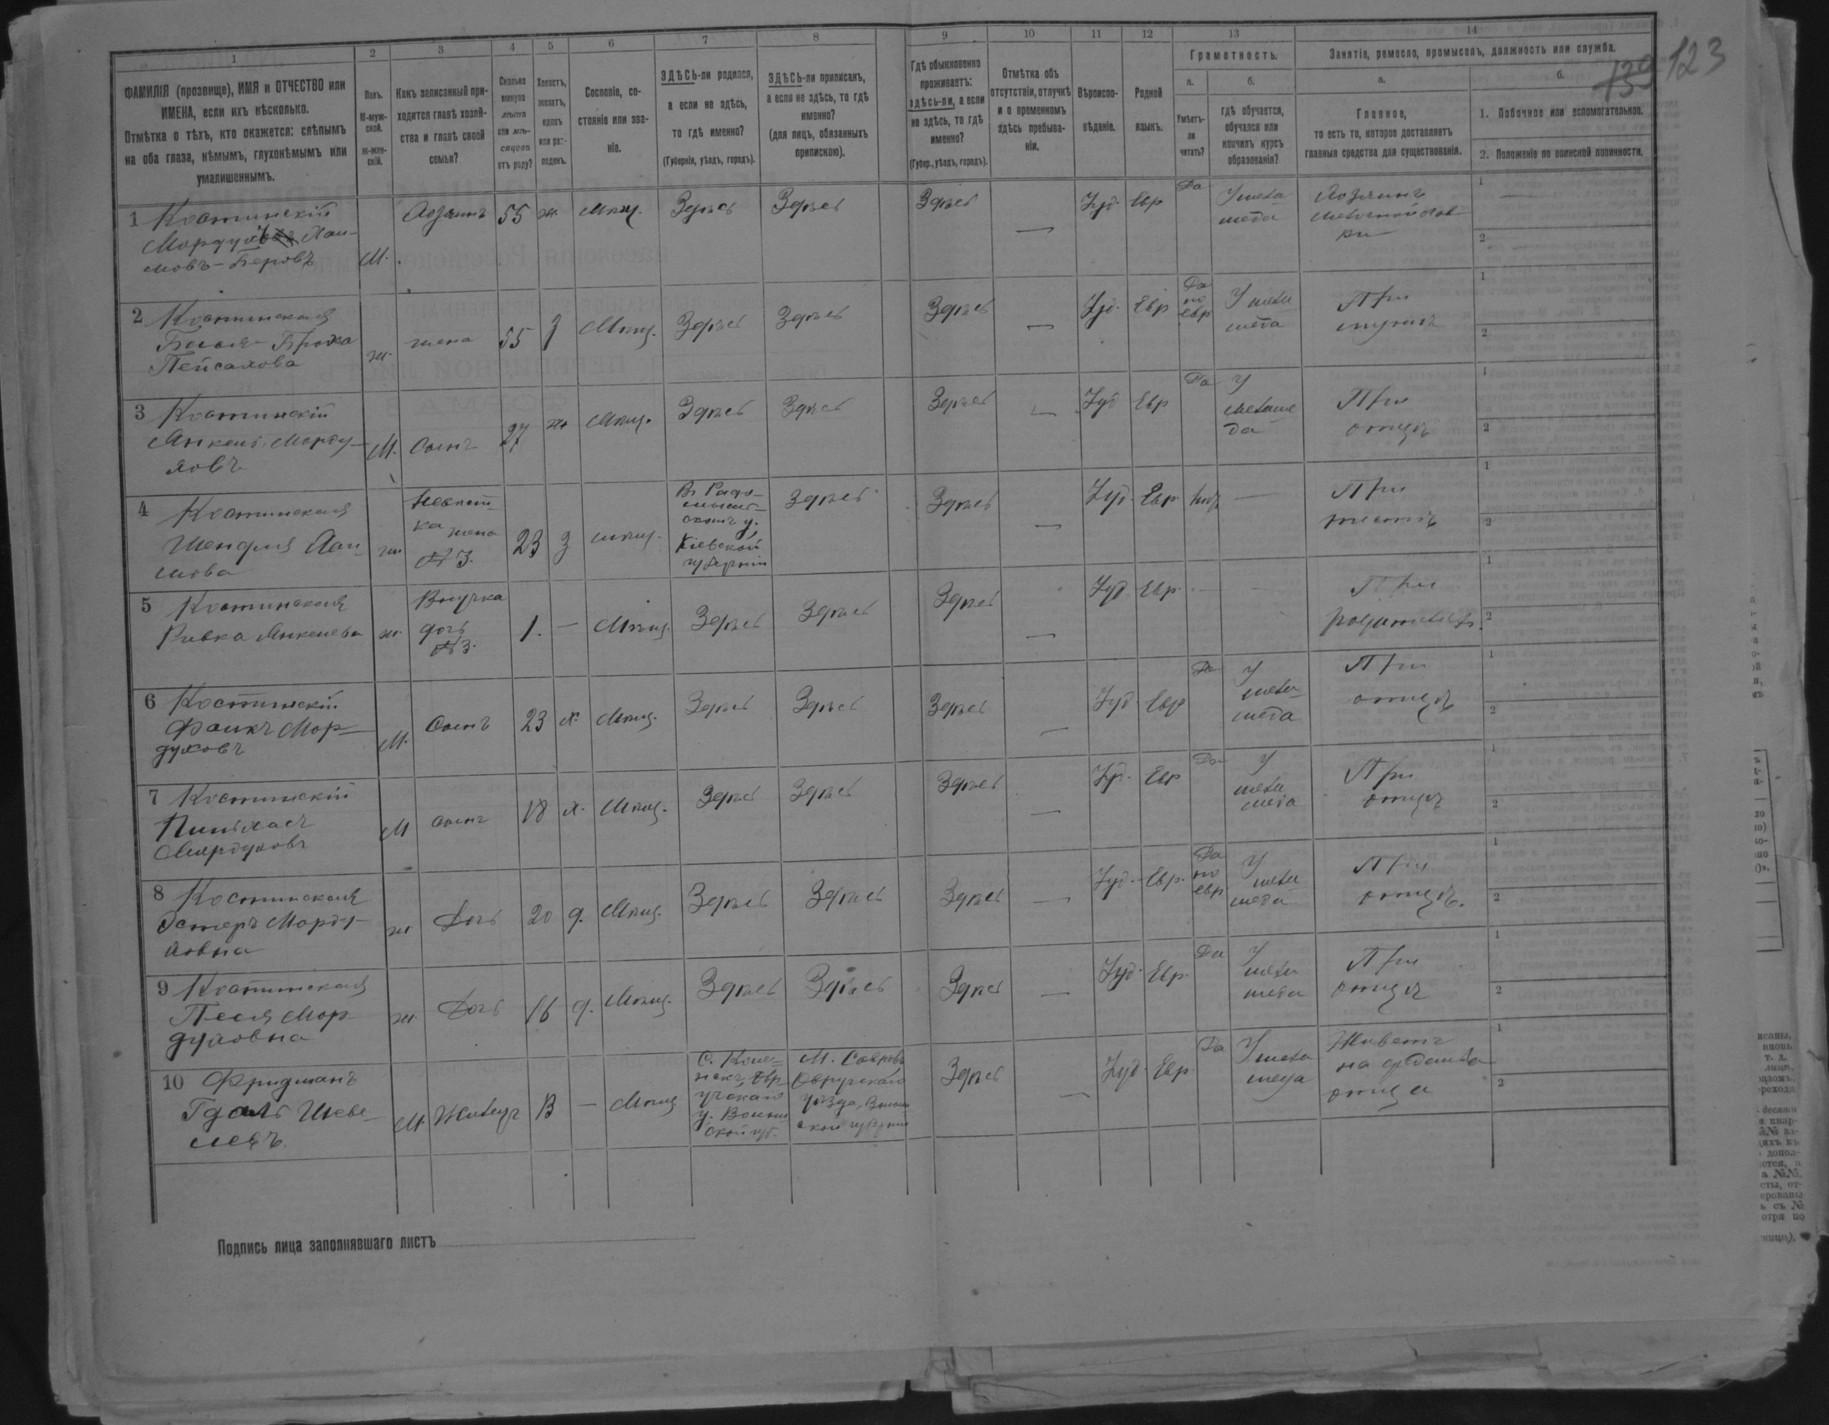 139 123
1 2 3 4 5 6 7 8 9 10 11 12 13 14
ФАМИЛІЯ (прозвище), ИМЯ и ОТЧЕСТВО или
ИМЕНА, если ихъ нѣсколько.
Отмѣтка о тѣхъ, кто окажется: слѣпымъ
на оба глаза, нѣмымъ, глухонѣмымъ или
умалишеннымъ.
Полъ.
М-муж-
ской.
Ж-жен-
скій.
Какъ записанный при-
ходится главѣ хозяй-
ства и главѣ своей
семьи?
Сколько
минуло
лѣтъ
или мѣ-
сяцевъ
отъ роду?
Холостъ,
женатъ,
вдовъ
или раз-
веденъ.
Сословіе, со-
стояніе или зва-
ніе.
ЗДѢСЬ-ли родился,
а если не здѣсь,
то гдѣ именно?
(Губернія, уѣздъ, городъ).
ЗДѢСЬ-ли приписанъ,
а если не здѣсь, то гдѣ
именно?
(для лицъ, обязанныхъ
припискою).
Гдѣ обыкновенно
проживаетъ:
здѣсь-ли, а если
не здѣсь, то гдѣ
именно?
(Губер., уѣздъ, городъ).
Отмѣтка объ
отсутствіи, отлучкѣ
и о временномъ
здѣсь пребыва-
ніи.
Вѣроиспо-
вѣданіе.
Родной
языкъ.
Грамотность.
а.
Умѣетъ-
ли
читать?
б.
гдѣ обучается,
обучался или
кончилъ курсъ
образованія?
Занятія, ремесло, промыселъ, должность или служба.
а.
Главное,
то есть то, которое доставляетъ
главныя средства для существованія.
б.
1. Побочное или вспомогательное.
2. Положеніе по воинской повинности.
1 Костинскій
Мордух Хаи-
мовъ-Беровъ
М. Хозяинъ 55 ж Мѣщ. Здѣсь Здѣсь Здѣсь — Іуд Евр Да
У мела-
меда
Хозяинъ
мелочной лав-
ки
2 Костинская
Брока
Пейсахова
ж. жена 55 З Мѣщ. Здѣсь Здѣсь Здѣсь — Іуд. Евр
Да
по
евр
У мела
меда
При
мужѣ
3 Костинскій
Янкель Морду-
ховъ
М. сынъ 27 ж Мѣщ. Здѣсь Здѣсь Здѣсь — Іуд Евр Да
У
меламе
да
При
отцѣ
4 Костинская
Шендля Хаи-
мова
ж
Невѣст-
ка жена
№ 3.
23 З мѣщ.
Въ Радо-
мысль-
скомъ у.
Кіевской
губерніи
Здѣсь Здѣсь — Іуд. Евр нѣтъ —
При
мужѣ
5 Костинская
Ривка Янкелева
ж.
Внучка
дочь
№ 3.
1. — Мѣщ. Здѣсь Здѣсь Здѣсь — Іуд Евр. — —
При
родителяхъ.
6 Костинскій
Фаикъ Мор-
духовъ
М. Сынъ 23 х. Мѣщ. Здѣсь Здѣсь Здѣсь — Іуд Евр Да
У
мела-
меда
При
отцѣ
7 Костинскій
Пинхасъ
Мордуховъ
М сынъ 18 х. Мѣщ. Здѣсь Здѣсь Здѣсь — Іуд. Евр Да
У
мела
меда
При
отцѣ
8 Костинская
Эстеръ Морду-
ховна
ж Дочь 20 д. Мѣщ. Здѣсь Здѣсь Здѣсь — Іуд. Евр.
Да
по
евр
У
мела
меда
При
отцѣ.
9 Костинская
Песя Мор
духовна
ж. Дочь 16 д. Мѣщ. Здѣсь Здѣсь Здѣсь — Іуд. Евр. Да
У
мела
меда
При
отцѣ
10 Фридманъ
Гдаль Шеве-
левъ.
М. Жилецъ 13 — Мѣщ
Овр
учскаго
у. Волын
ской губ.
М.
Овручскаго
уѣзда, Волын
ской губерніи
Здѣсь — Іуд. Евр. Да
У мела
меда
Живетъ
на средства
отца
Подпись лица заполнявшаго листъ